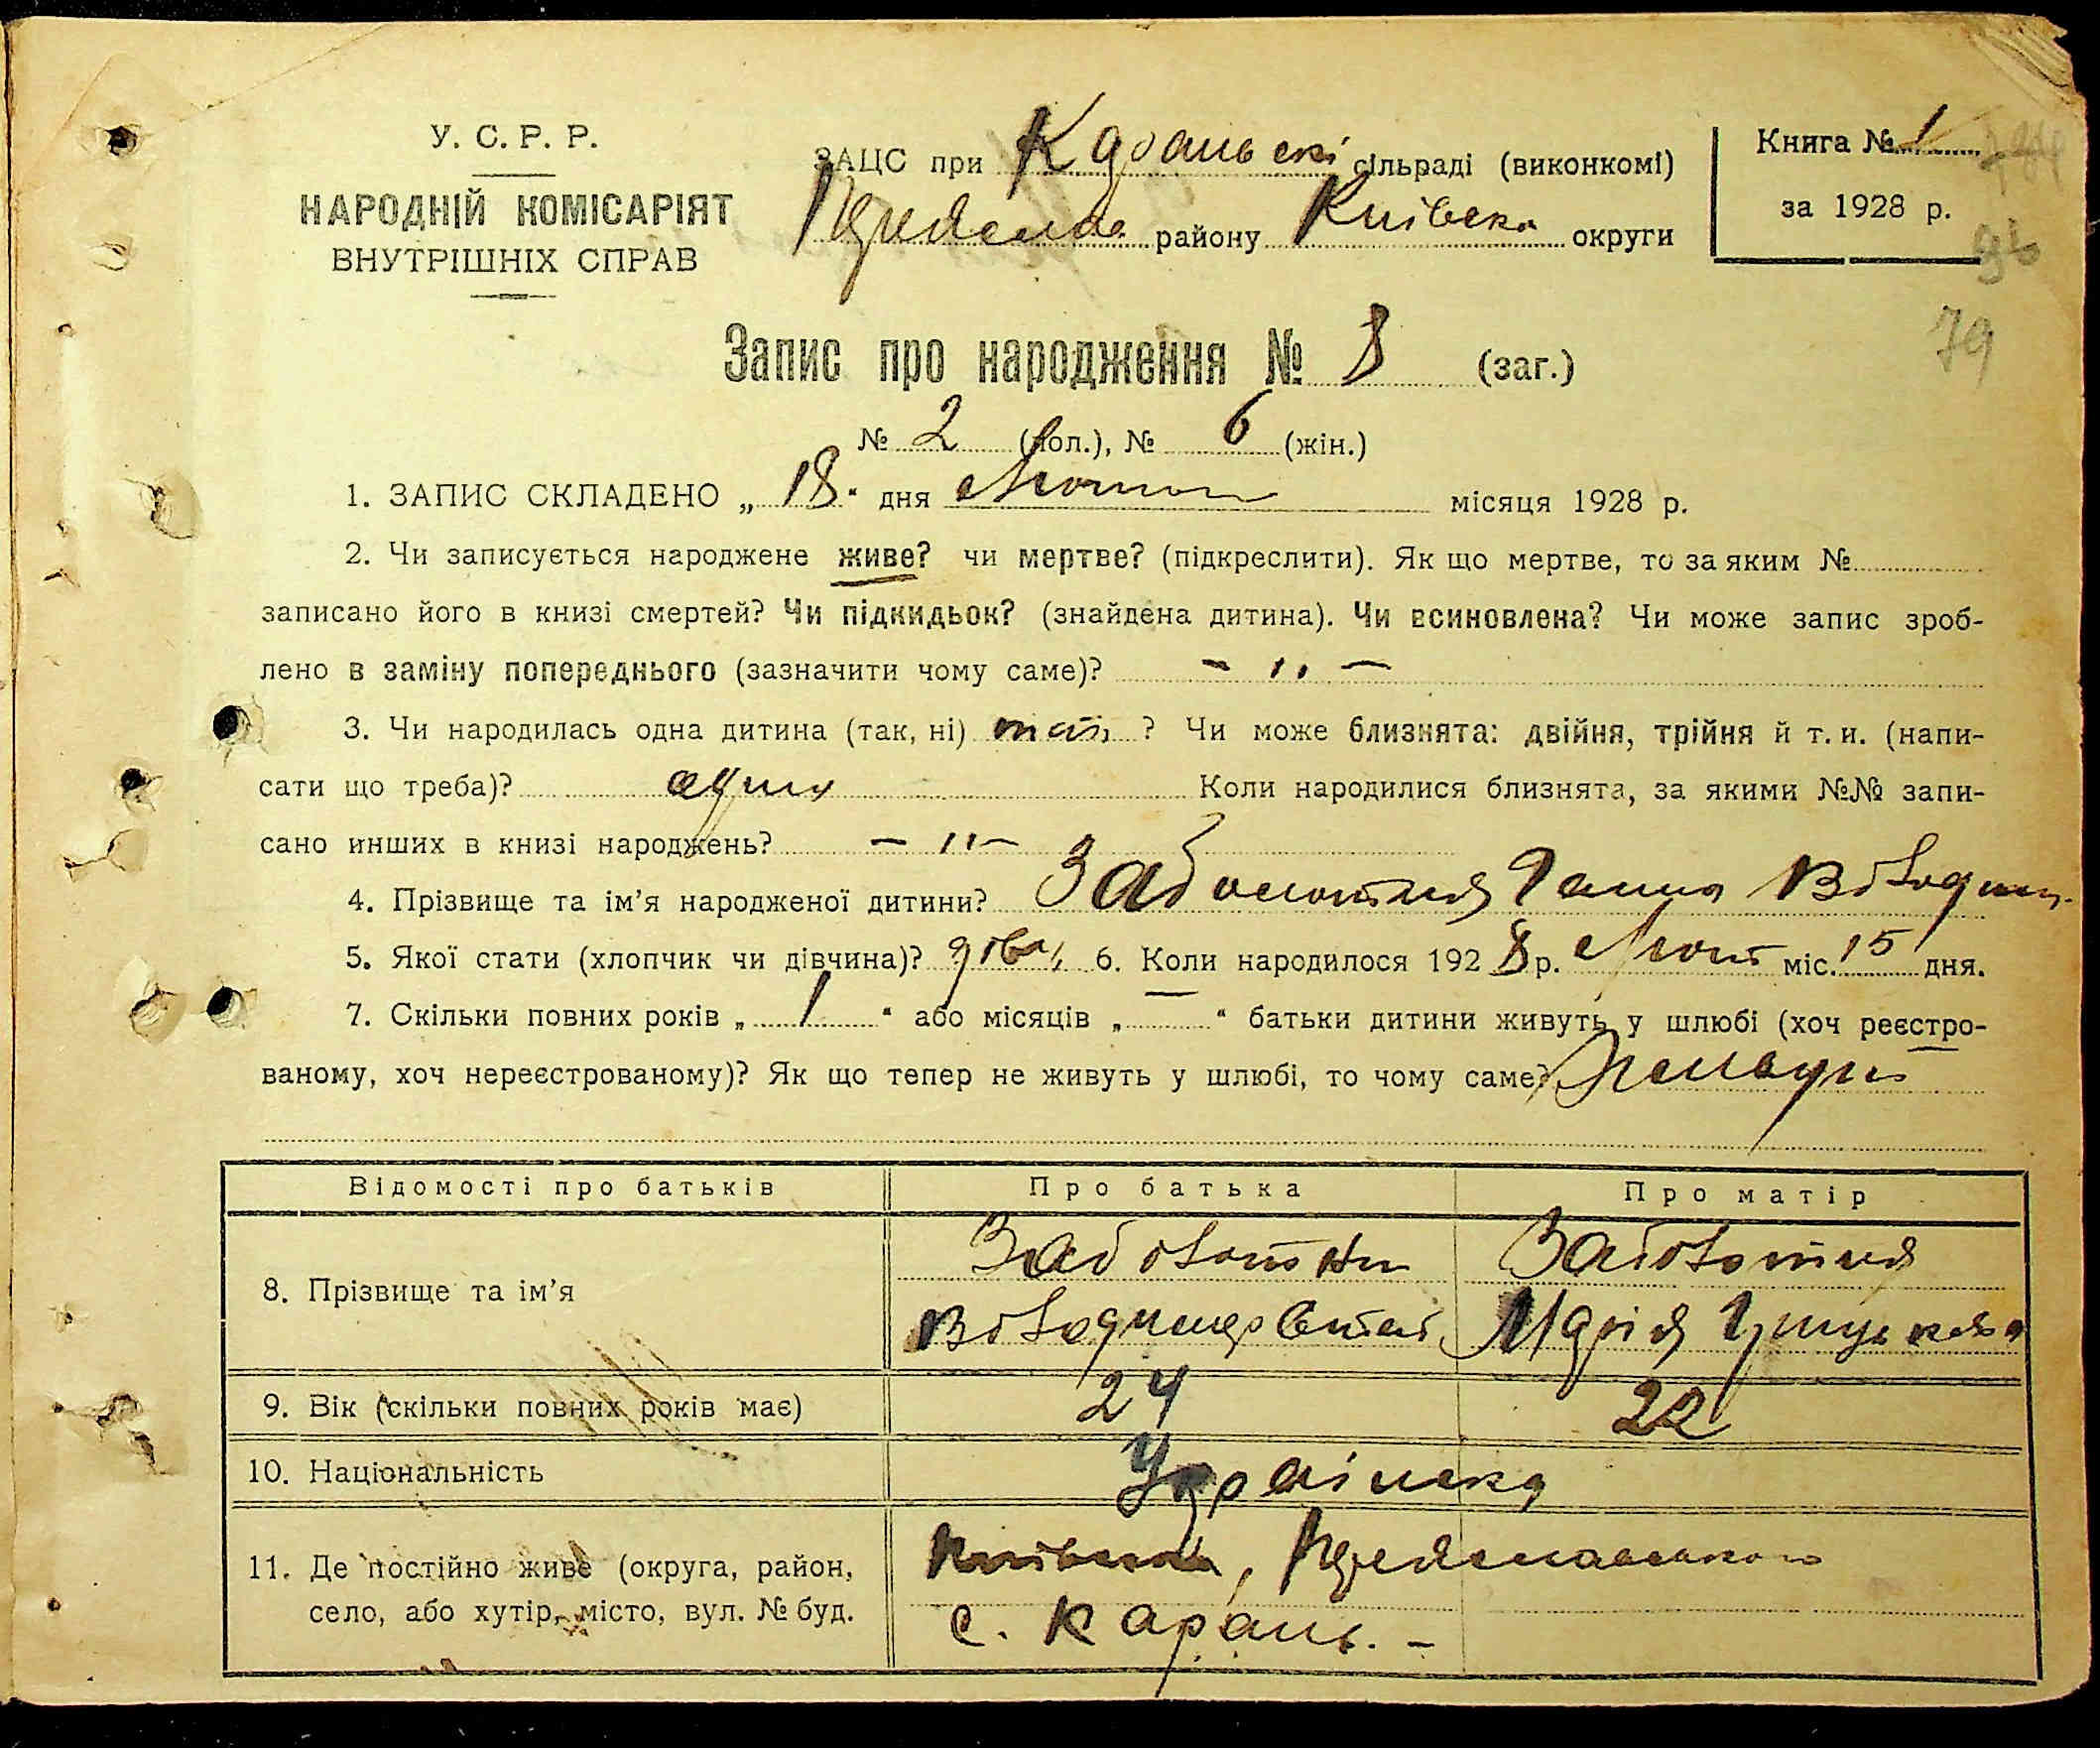 У. С. Р. Р.
НАРОДНІЙ КОМІСАРІЯТ
ВНУТРІШНІХ СПРАВ
ЗАЦС при Караньскі сільраді (виконкомі)
району Київськ округи
Книга № 1
за 1928 р.
79
Запис про народження № 8 (заг.)
№ 2 (пол.), № 6 (жін.)
1. ЗАПИС СКЛАДЕНО „ 18 “ дня Лютого місяця 1928 р.
2. Чи записується народжене живе? чи мертве? (підкреслити). Як що мертве, то за яким №
записано його в книзі смертей? Чи підкидьок? (знайдена дитина). Чи всиновлена? Чи може запис зроб-
лено в заміну попереднього (зазначити чому саме)? – „ –
3. Чи народилась одна дитина (так, ні) так ? Чи може близнята: двійня, трійня й т. и. (напи-
сати що треба)? одна Коли народилися близнята, за якими №№ запи-
сано инших в книзі народжень? – „ –
4. Прізвище та ім’я народженої дитини? Заболотня Ганна Володим.
5. Якої стати (хлопчик чи дівчина)? дівч. 6. Коли народилося 192 8 р. Лют міс. 15 дня.
7. Скільки повних років „ 1 “ або місяців „ “ батьки дитини живуть у шлюбі (хоч реєстро-
ваному, хоч нереєстрованому)? Як що тепер не живуть у шлюбі, то чому саме?
Відомості про батьків
Про батька
Про матір
8. Прізвище та ім’я
Заболотни
Заболотня
Володимер
Марія
9. Вік (скільки повних років має)
24
22
10. Національність
Українска
11. Де постійно живе (округа, район,
село, або хутір, місто, вул. № буд.
с. Карань. –